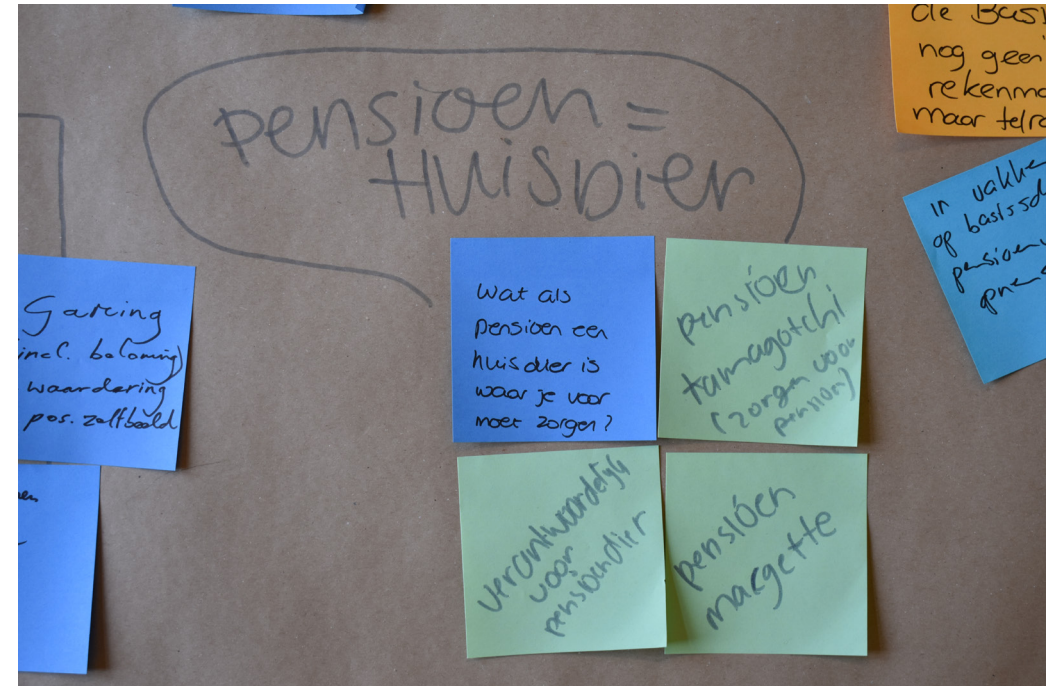 pensioen =
Huisdier
de Basi
nog geen
rekenma
maar telra
in vakke
op basissch
pensioen
Garing
incl. beloning)
waardering
pos. zelfbeeld
Wat als
pensioen een
huisdier is
waar je voor
moet zorgen?
pensioen
tamagotchi
(zorgen voor
pension)
verantwoordelijk
voor
pensioendier
pensioen
margette